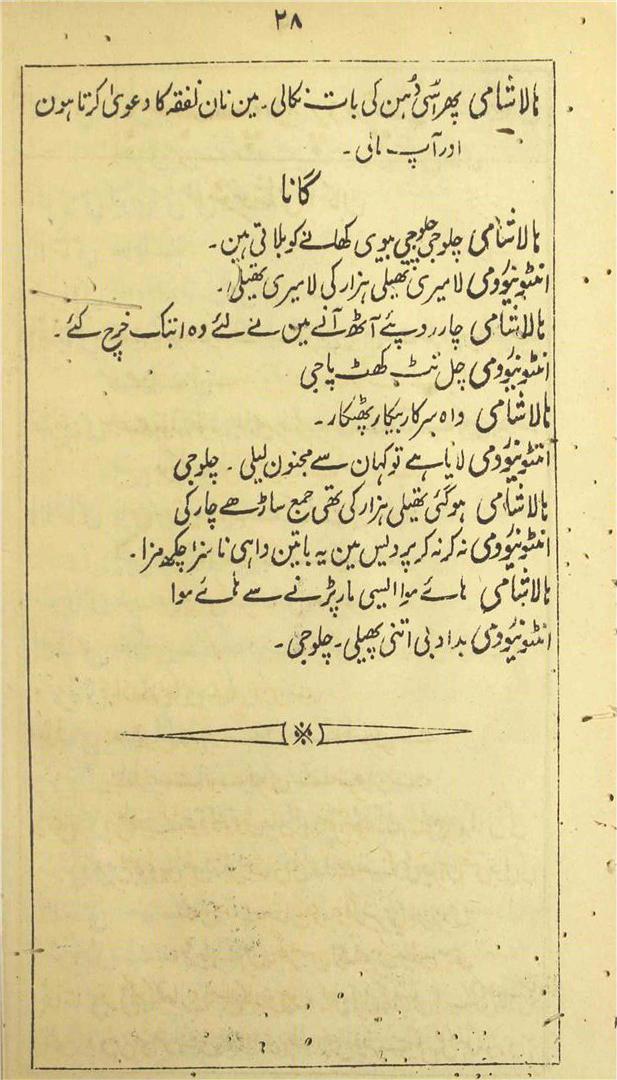 ۲۸
ہالاشامی پھر اُسی دُہن کی بات نکالی۔ مین نان نفقہ کا دعویٰ کرتا ہون
اور آپ ہائی۔
گانا
ہالاشامی چلوجی چلوجی بیوی کھانے کو بلاتی ہین۔
انٹونیوُومی لا میری تھیلی ہزار کی لا میری تھیلی۔
ہالاشامی چار روپئے آٹھ آنے مین نے لئے وہ ابتک خرچ کئے۔
انٹونیوُومی چل نٹ کھٹ پاجی
ہالاشامی واہ سرکار بیکار پھٹکار۔
انٹونیوُومی لایا ہے تو کہان سے مجنون لیلی۔ چلوجی
ہالاشامی ہوگئی تھیلی ہزار کی تھی جمع ساڑھے چار کی
انٹونیوُومی نہ کر نہ کر پردیس مین یہ باتین واہی ناسزا چکھ مزا۔
ہالاشامی ہائے موا ایسی مار پڑنے سے ہائے موا
انٹونیوُومی بدادبی اتنی پھیلی۔ چلوجی۔